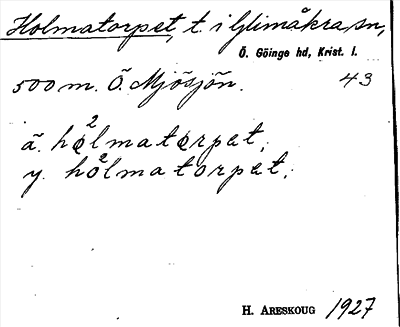 Holmatorpet, t. i Glimåkra sn,
Ö. Göinge hd, Krist. l.
500 m. Ö. Mjösjön. 43
ä. ho²lmatorpet,
y. ho²lmatorpet.
H. ARESKOUG 1927